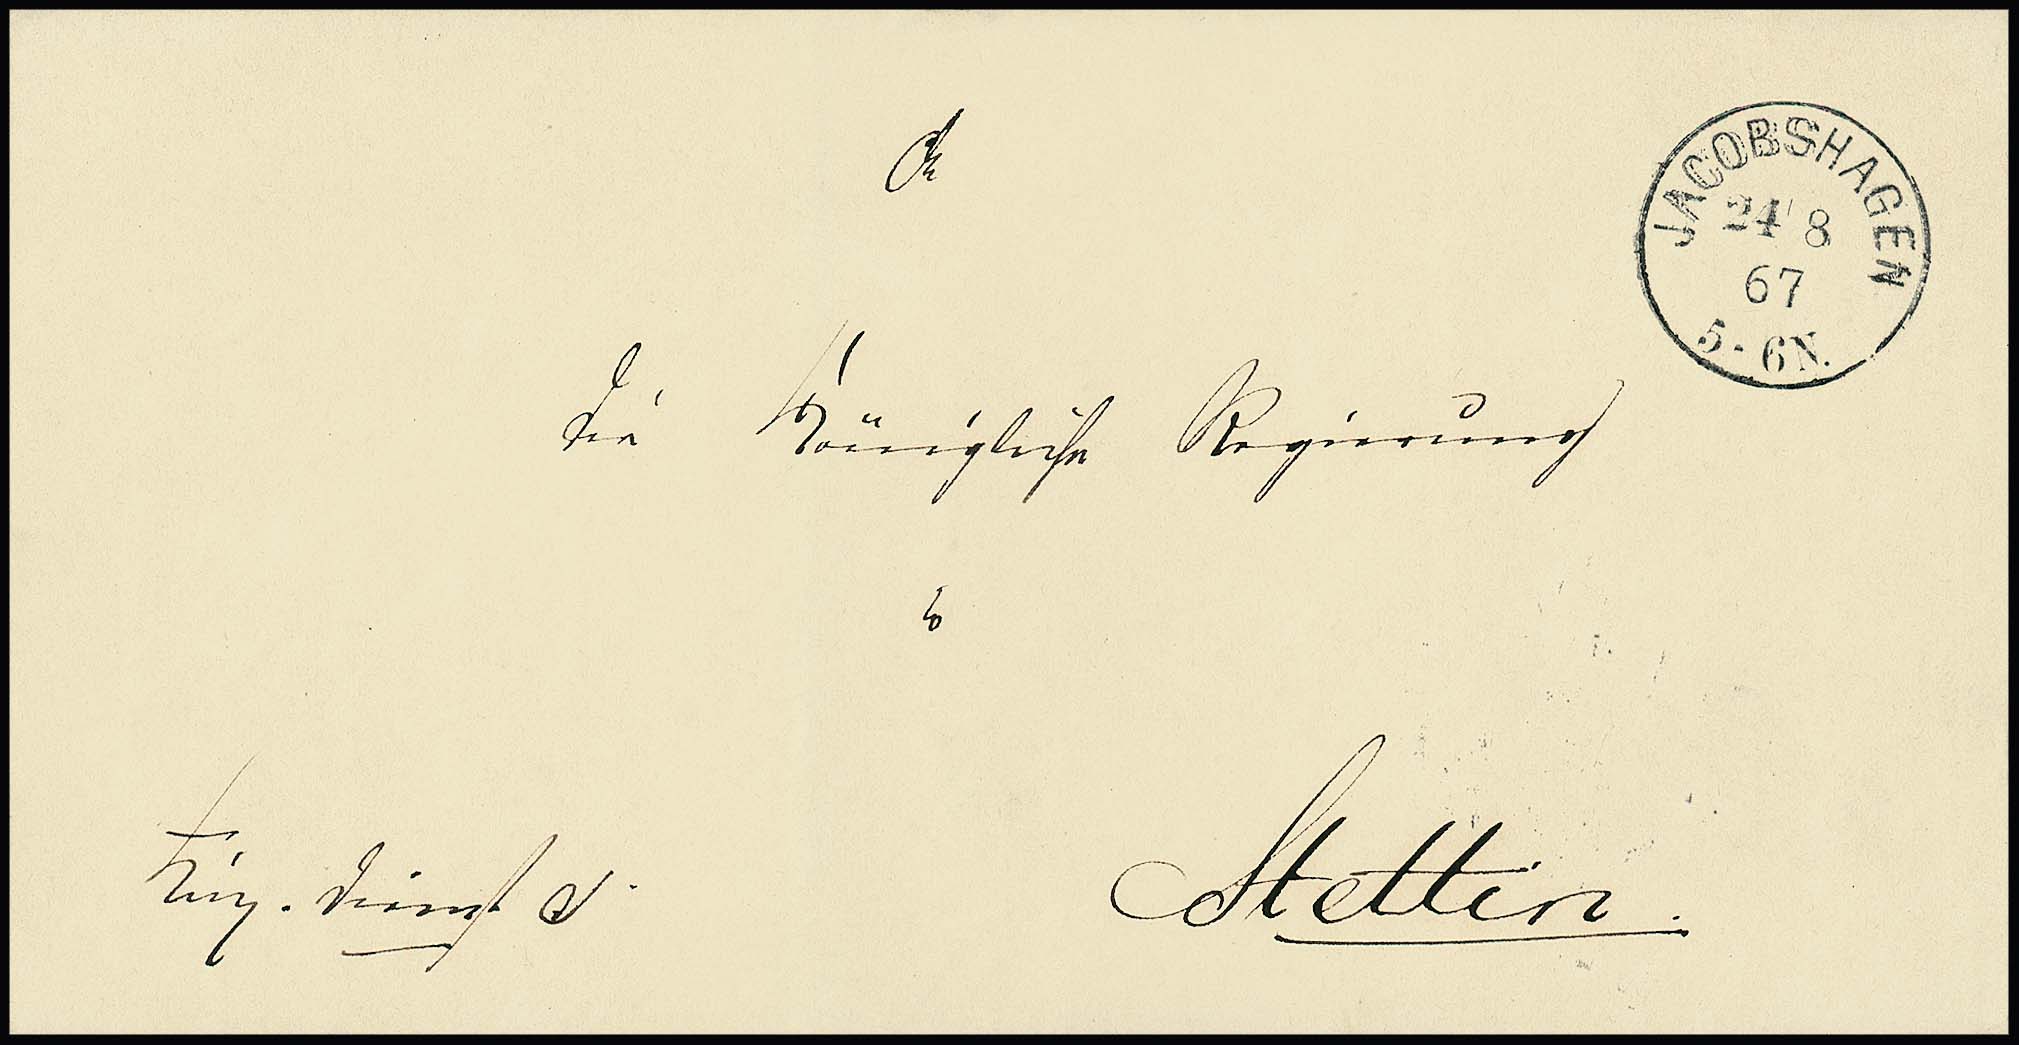 JACOBSHAGEN
24 8
67
5-6N.
An
die Königliche Regierung
zu
Stettin.